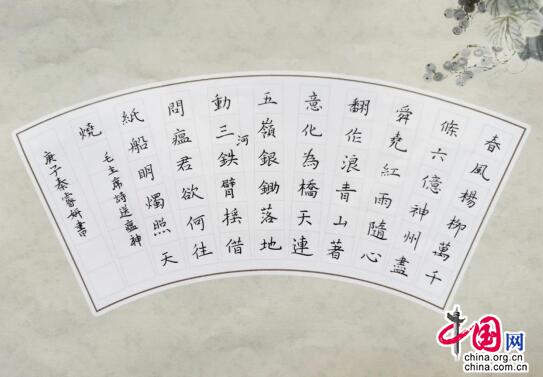 春風楊柳萬千
條六億神州盡
舜堯紅雨隨心
翻作浪青山著
意化為橋天連
五嶺銀鋤落地
動三河鉄臂摇借
問瘟君欲何往
紙船明燭照天
燒
毛主席詩送瘟神
庚子秦睿妍書
中国网
china.org.cn
china.com.cn